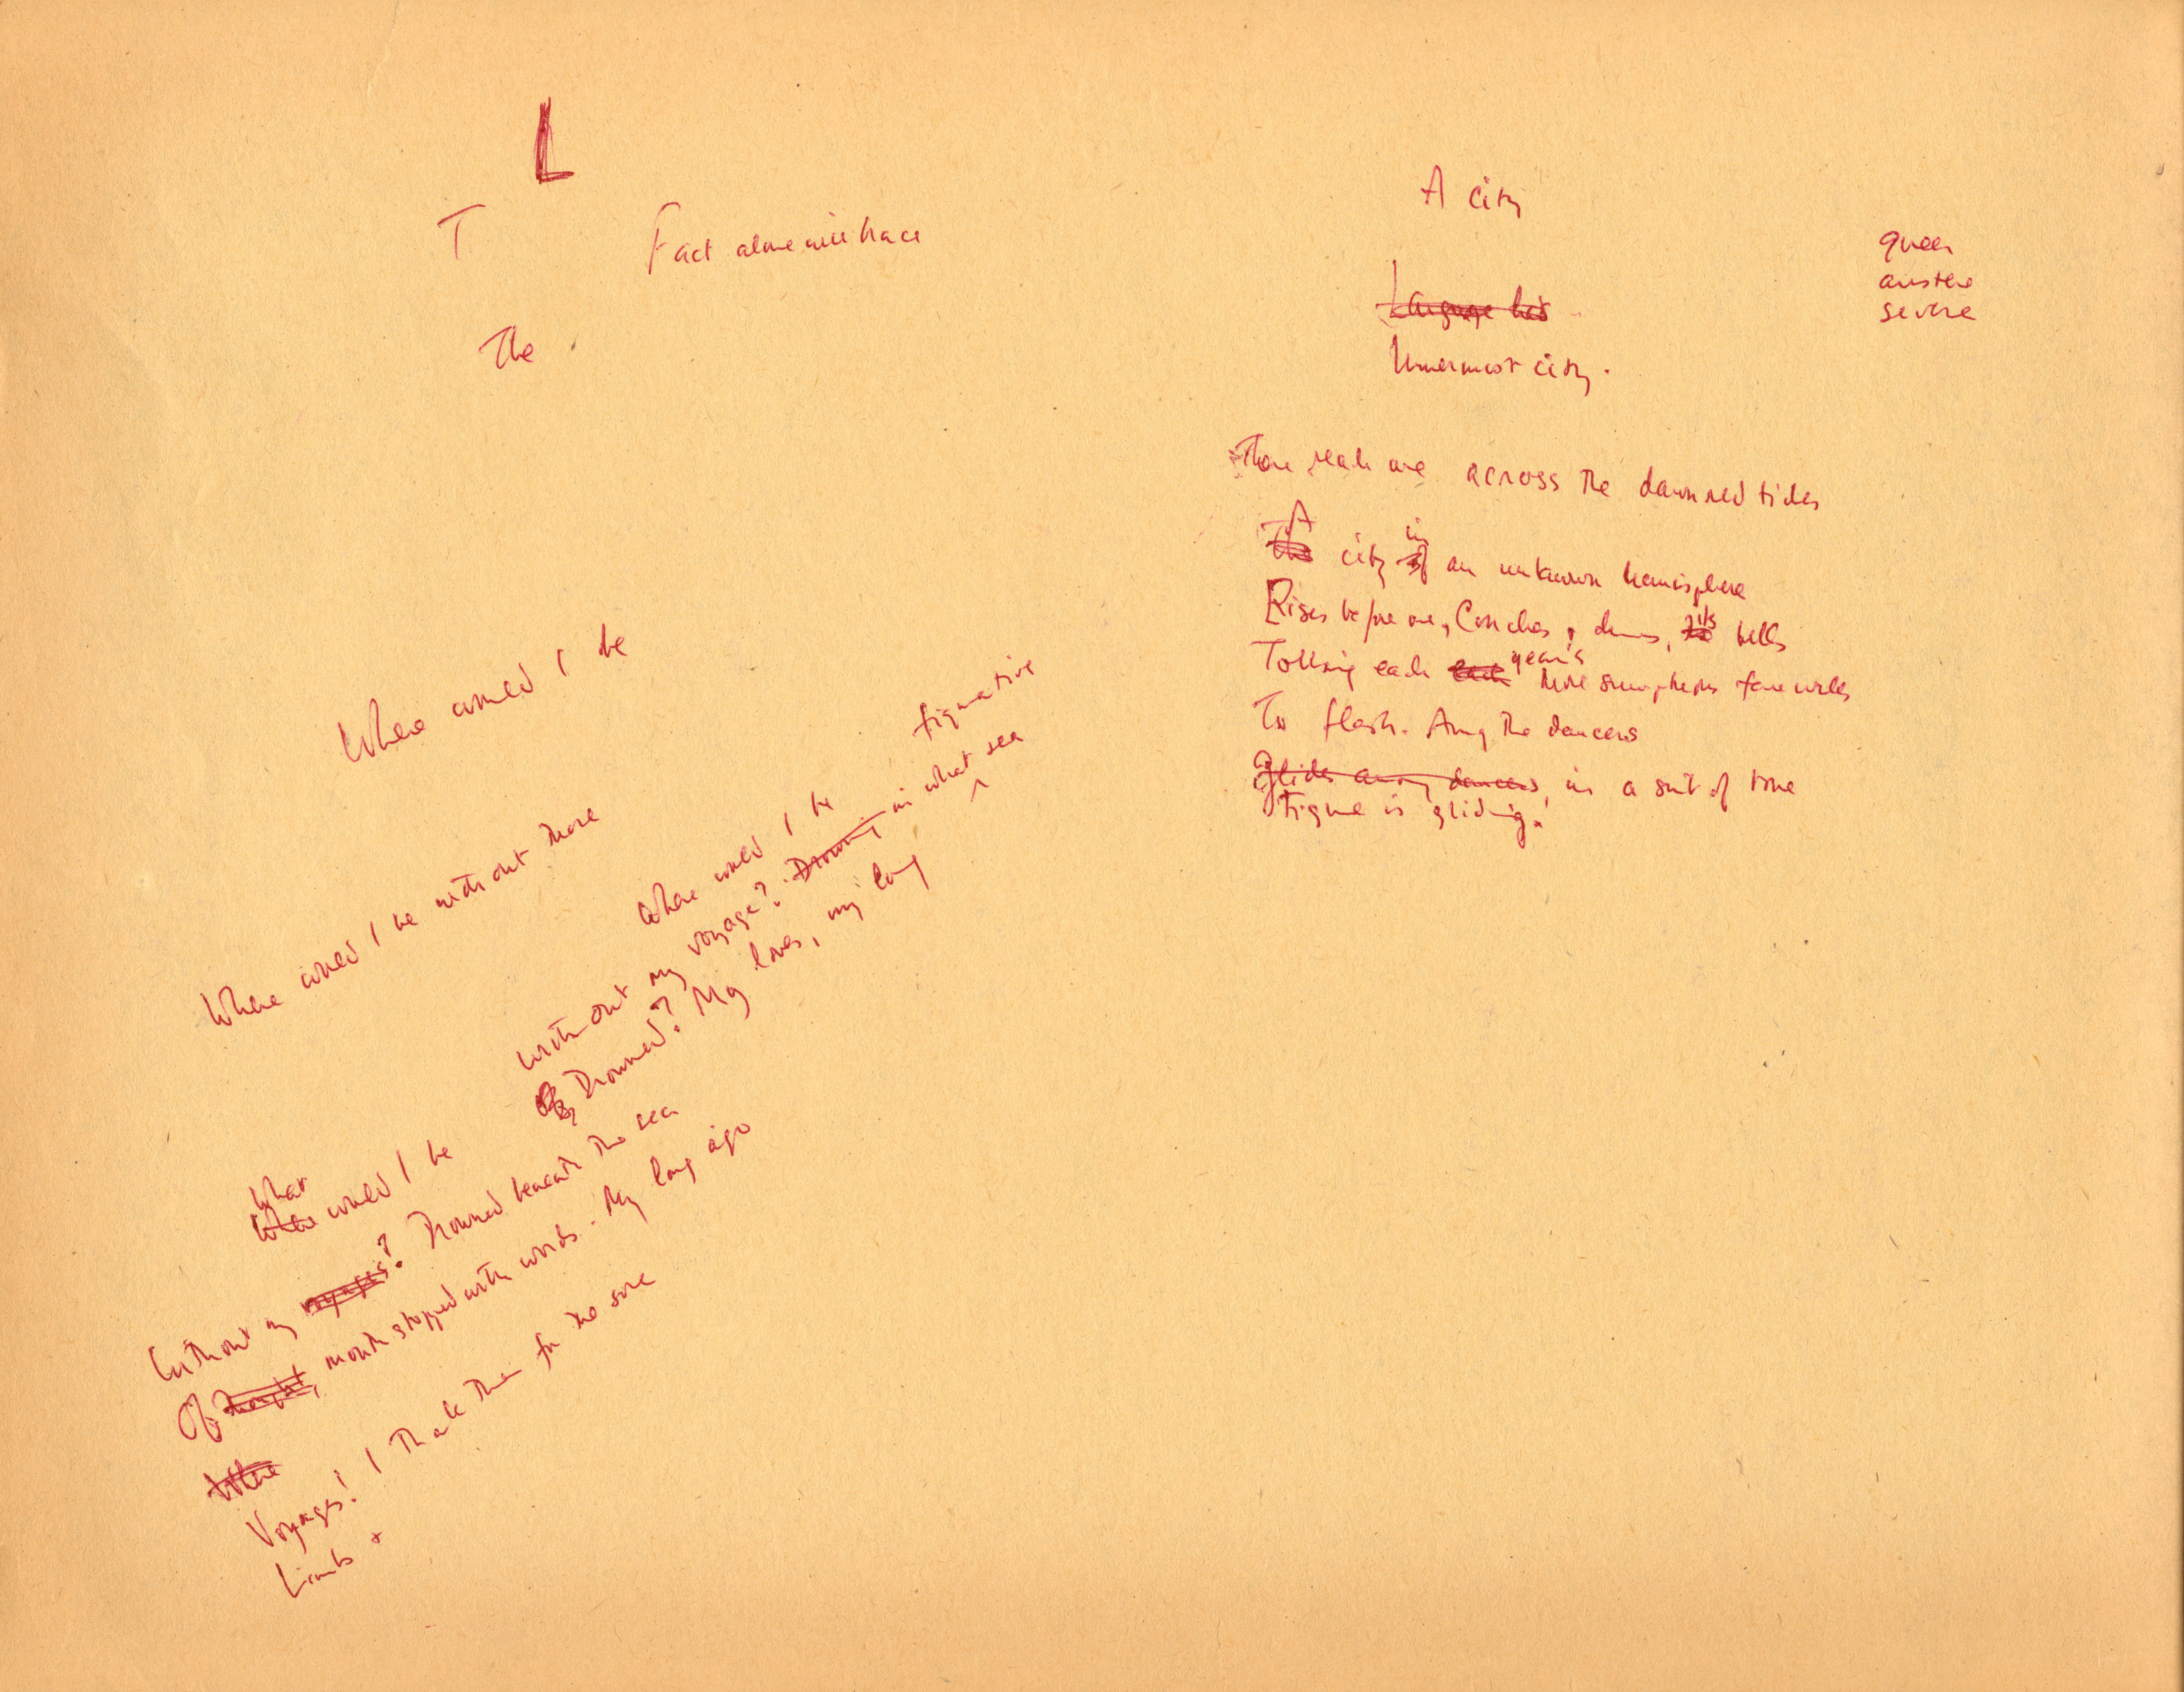 L
T
Fact alone will trace
The
Where would I be
Where would I be without these
Where would I be
figurative
without my voyage? Drowning in what sea
Of Drowned? My loves, my long
What
Where would I be
Without my voyages? Drowned beneath the sea
Of thought, mouth stopped with words. My long ago
Where
Voyages! I thank them for the sore
Limbs &
A city
Language has
Innermost city.
queer
austere
severe
reach me across the damned tides
A in
The city of an unknown hemisphere
Rises before me, Conches, drums, its bells
Tolling each each year's more farewells
To flesh. Among the dancers
Glides among dancers, in a suit of
Figure is gliding.